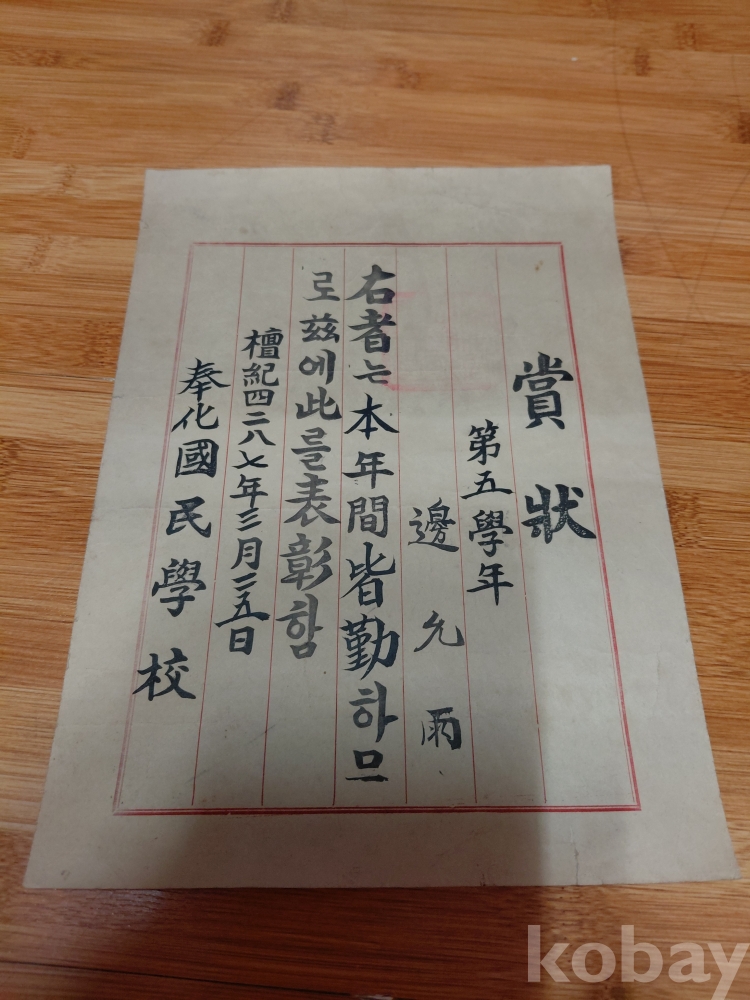 賞狀
第五學年
邊允雨
右者는本年間皆勤하므
로玆에此를表彰함
檀紀四二八七年三月二五日
奉化國民學校
kobay